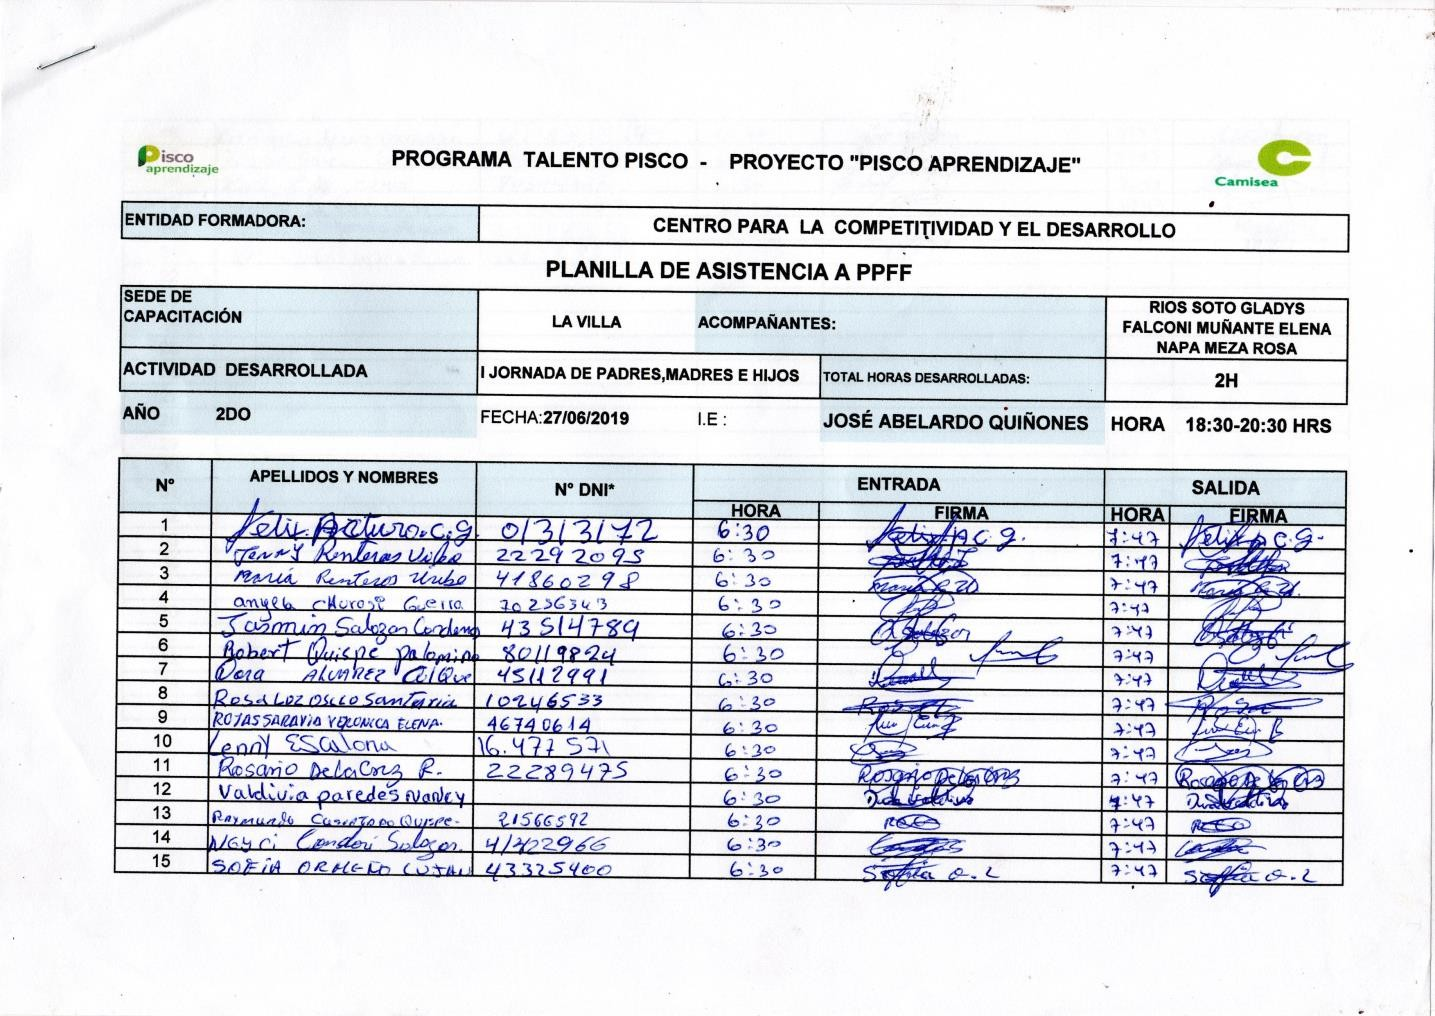 Pisco
aprendizaje
PROGRAMA TALENTO PISCO - PROYECTO "PISCO APRENDIZAJE"
Camisea
ENTIDAD FORMADORA: CENTRO PARA LA COMPETITIVIDAD Y EL DESARROLLO
PLANILLA DE ASISTENCIA A PPFF
SEDE DE CAPACITACIÓN LA VILLA ACOMPAÑANTES: RIOS SOTO GLADYS
FALCONI MUÑANTE ELENA
NAPA MEZA ROSA
ACTIVIDAD DESARROLLADA I JORNADA DE PADRES,MADRES E HIJOS TOTAL HORAS DESARROLLADAS: 2H
AÑO 2DO FECHA:27/06/2019 I.E : JOSÉ ABELARDO QUIÑONES HORA 18:30-20:30 HRS
N° APELLIDOS Y NOMBRES N° DNI* ENTRADA SALIDA
HORA FIRMA HORA FIRMA
1 Felix Arturo.c.g. 6:30 Felix A c.g. 7:47 Felix A c.g.
2 Jenny Renteros Uribe 22292095 6:30 7:47
3 María Renteros Uribe 41860298 6:30 7:47
4 angela Guerra 70256343 6:30 7:47
5 Jasmin Salazar Cordero 43514789 6:30 7:47
6 Robert Quispe palomino 80119824 6:30 7:47
7 Dora ALVAREZ 45112991 6:30 7:47
8 Rosa Loz 10246533 6:30 7:47
9 ROJAS SARAVIA VERONICA ELENA. 46740614 6:30 7:47
10 Lenny EScalona 16.477571 6:30 7:47
11 Rosario DelaCruz R. 22289475 6:30 Rosario De la Cruz 7:47 Rosario De la Cruz
12 Valdivia paredes Nancy 6:30 7:47
13 Raymundo Quispe- 21566592 6:30 7:47
14 Neyci Condori Salazar. 41422966 6:30 7:47
15 SOFÍA ORMEÑO LUJAN 43325400 6:30 Sofia O.L 7:47 Sofia O.L